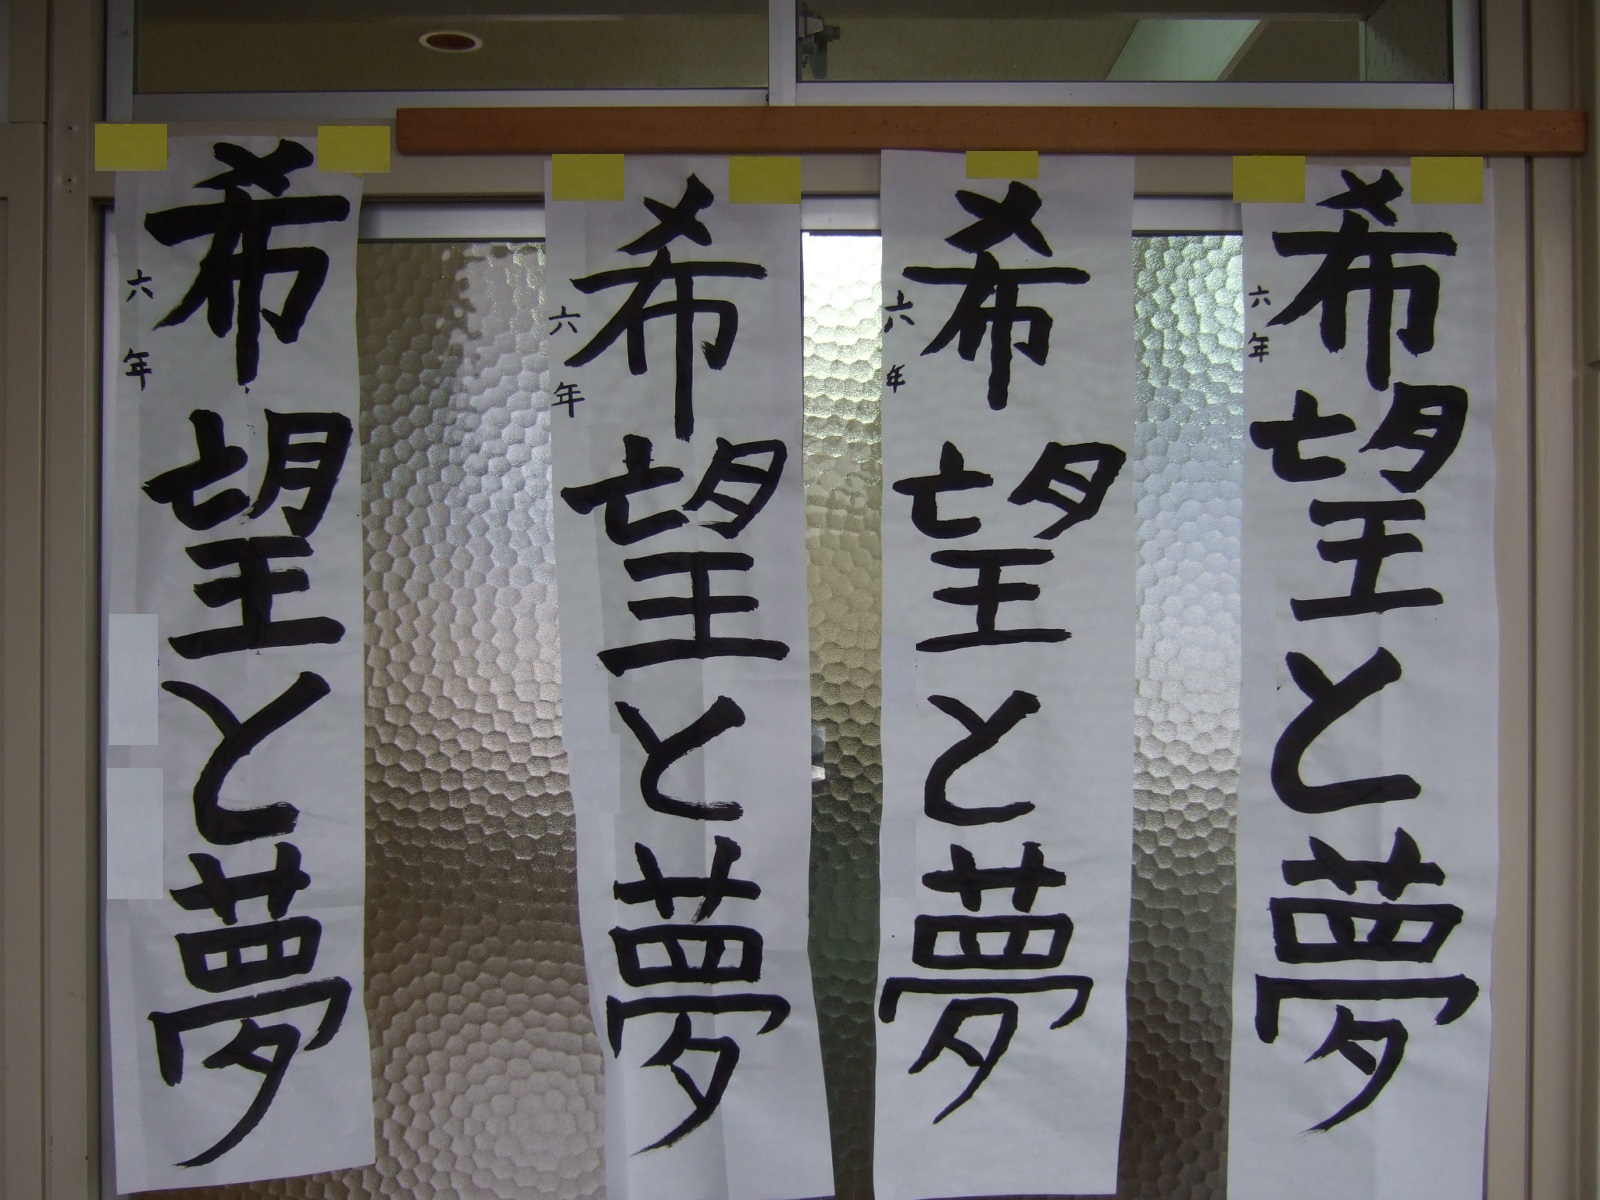 希望と夢
六年
希望と夢
六年
希望と夢
六年
希望と夢
六年